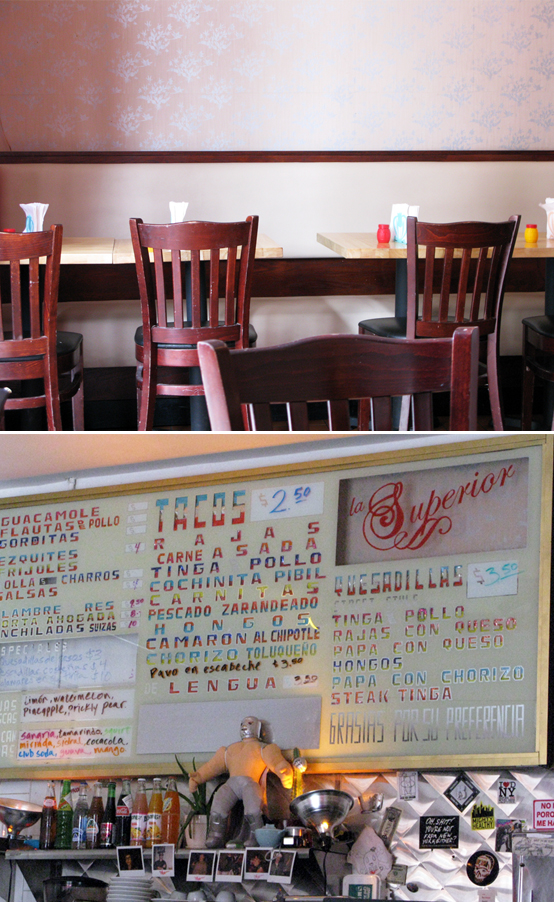 GUACAMOLE
FLAUTAS DE POLLO
GORDITAS
EZQUITES
FRIJOLES
OLLA CHARROS
SALSAS
ALAMBRE RES
TORTA AHOGADA
ENCHILADAS SUIZAS
ESPECIALES
limón, watermelon,
pineapple, prickly pear
sangria, tamarindo,
mirinda, sidral, cocacola,
club soda, guava, mango
TACOS $2.50
RAJAS
CARNE ASADA
TINGA POLLO
COCHINITA PIBIL
CARNITAS
PESCADO ZARANDEADO
HONGOS
CAMARON AL CHIPOTLE
CHORIZO TOLUQUEÑO
Pavo en escabeche $3.50
DE LENGUA 3.50
la Superior
QUESADILLAS $3.50
STREET STYLE
TINGA POLLO
RAJAS CON QUESO
PAPA CON QUESO
HONGOS
PAPA CON CHORIZO
STEAK TINGA
GRASIAS POR SU PREFERENCIA
I NY
OH SHIT!
YOU'RE NOT
NO